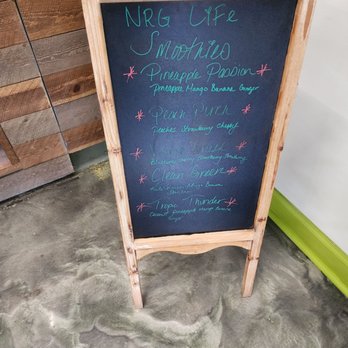 NRG Life
Smoothies
Pineapple Passion
Pineapple Mango Banana Ginger
Peach Punch
Peaches Strawberry Cherry
Blueberry Cherry Strawberry
Clean Green
Mango Banana
Tropic Thunder
Coconut Pineapple Mango Banana
Ginger